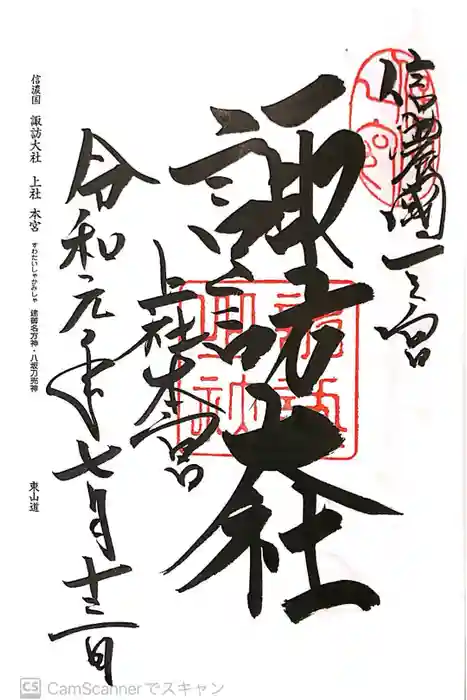 信濃國一之宮
諏訪大社
上社本宮
令和元年七月十三日
信濃国 諏訪大社 上社 本宮 すわたいしゃかみしゃ 建御名方神・八坂刀売神 東山道
CS CamScannerでスキャン